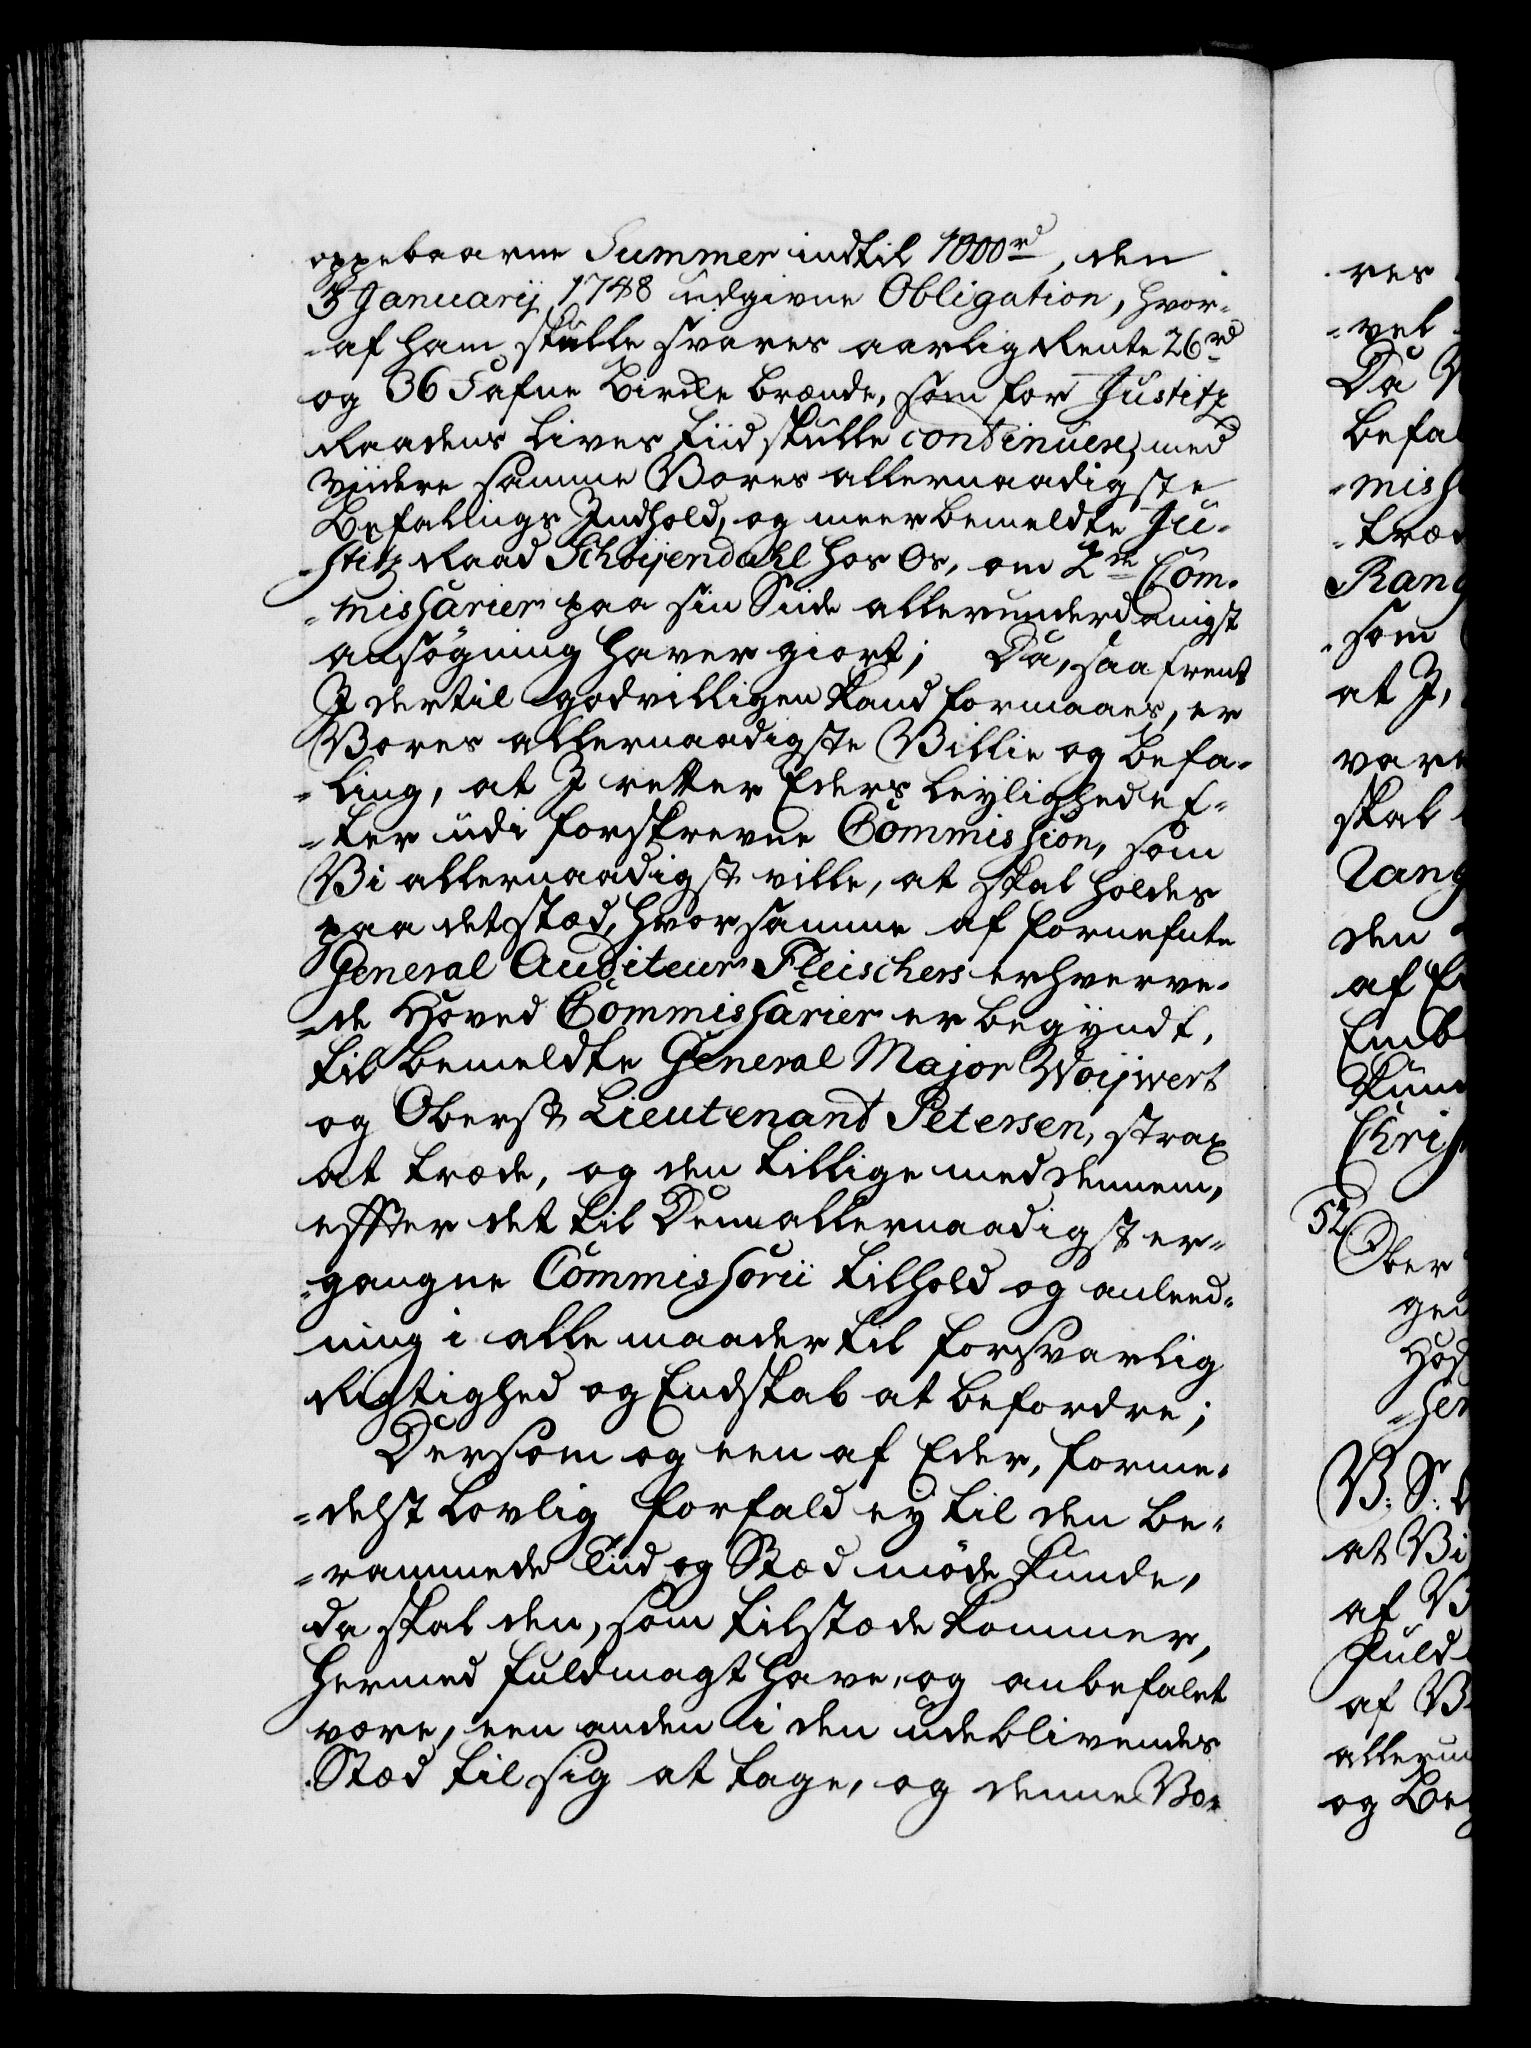 oppebaarne Summer indtil 1000 rd, den
3 Januarij 1748 udgivne Obligation, hvor-
-af ham skulle svares aarlig Rente 26 rd
og 36 Fafne Birke brænde, som for Justitz
Raadens Lives tiid skulle continuere, med
viidere samme Vores allernaadigste
Befalings Indhold, og meerbemeldte Ju-
-stitz Raad Schöijendahl hos Os, om 2de Com-
-missarier paa sin Siide allerunderdanigst
ansøgning haver giort; Da, saafremt
I dertil godvilligen kand formaaes, er
Vores allernaadigste Villie og befa-
-ling, at I retter Eders Leylighed ef-
-ter udi forskrevne Commission, som
Vi allernaadigst ville, at skal holdes
paa det stæd, hvor samme af fornefnte
General Auditeur Fleischers erhverve-
-de Hoved Commissarier er begyndt,
til bemeldte General Major Woijwert
og Oberst Lieutenant Petersen, strax
at træde, og den tillige med dennem,
effter det til Dem allernaadigst er-
-gangne Commissorii tilhold og anleed-
ning i alle maader til forsvarlig
Rigtighed og Endskab at befordre;
Dersom og een af Eder, forme-
-delst lovlig forfald ey til den be-
-rammede Tiid og Stæd møde kunde,
da skal den, som tilstæde kommer,
hermed fuldmagt have, og anbefalet
være, een anden i den udeblivendes
Stæd til sig at tage, og denne Vor
res
-vel
Da V
befal
-miss
-træd
Rang
-som
at I,
være
skal
Rang
den
af E
Emb
kun
Chris
52
Ober
gen
Hof
-ser
V: S:
at Vi
af V
fuld
af V
allerun
og Be